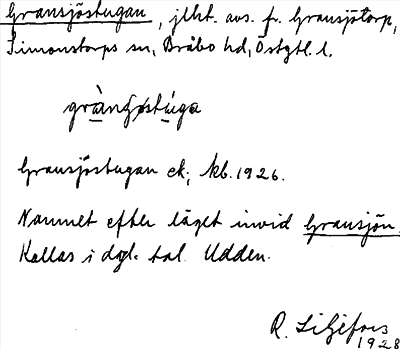 Gransjöstugan, jlht. avs. fr. Gransjötorp,
Simonstorps sn, Bråbo hd, Östgtl. l.
Gransjöstugan ek; kb. 1926.
Namnet efter läget invid Gransjön.
Kallas i dgl. tal Udden.
R. Liljefors
1928